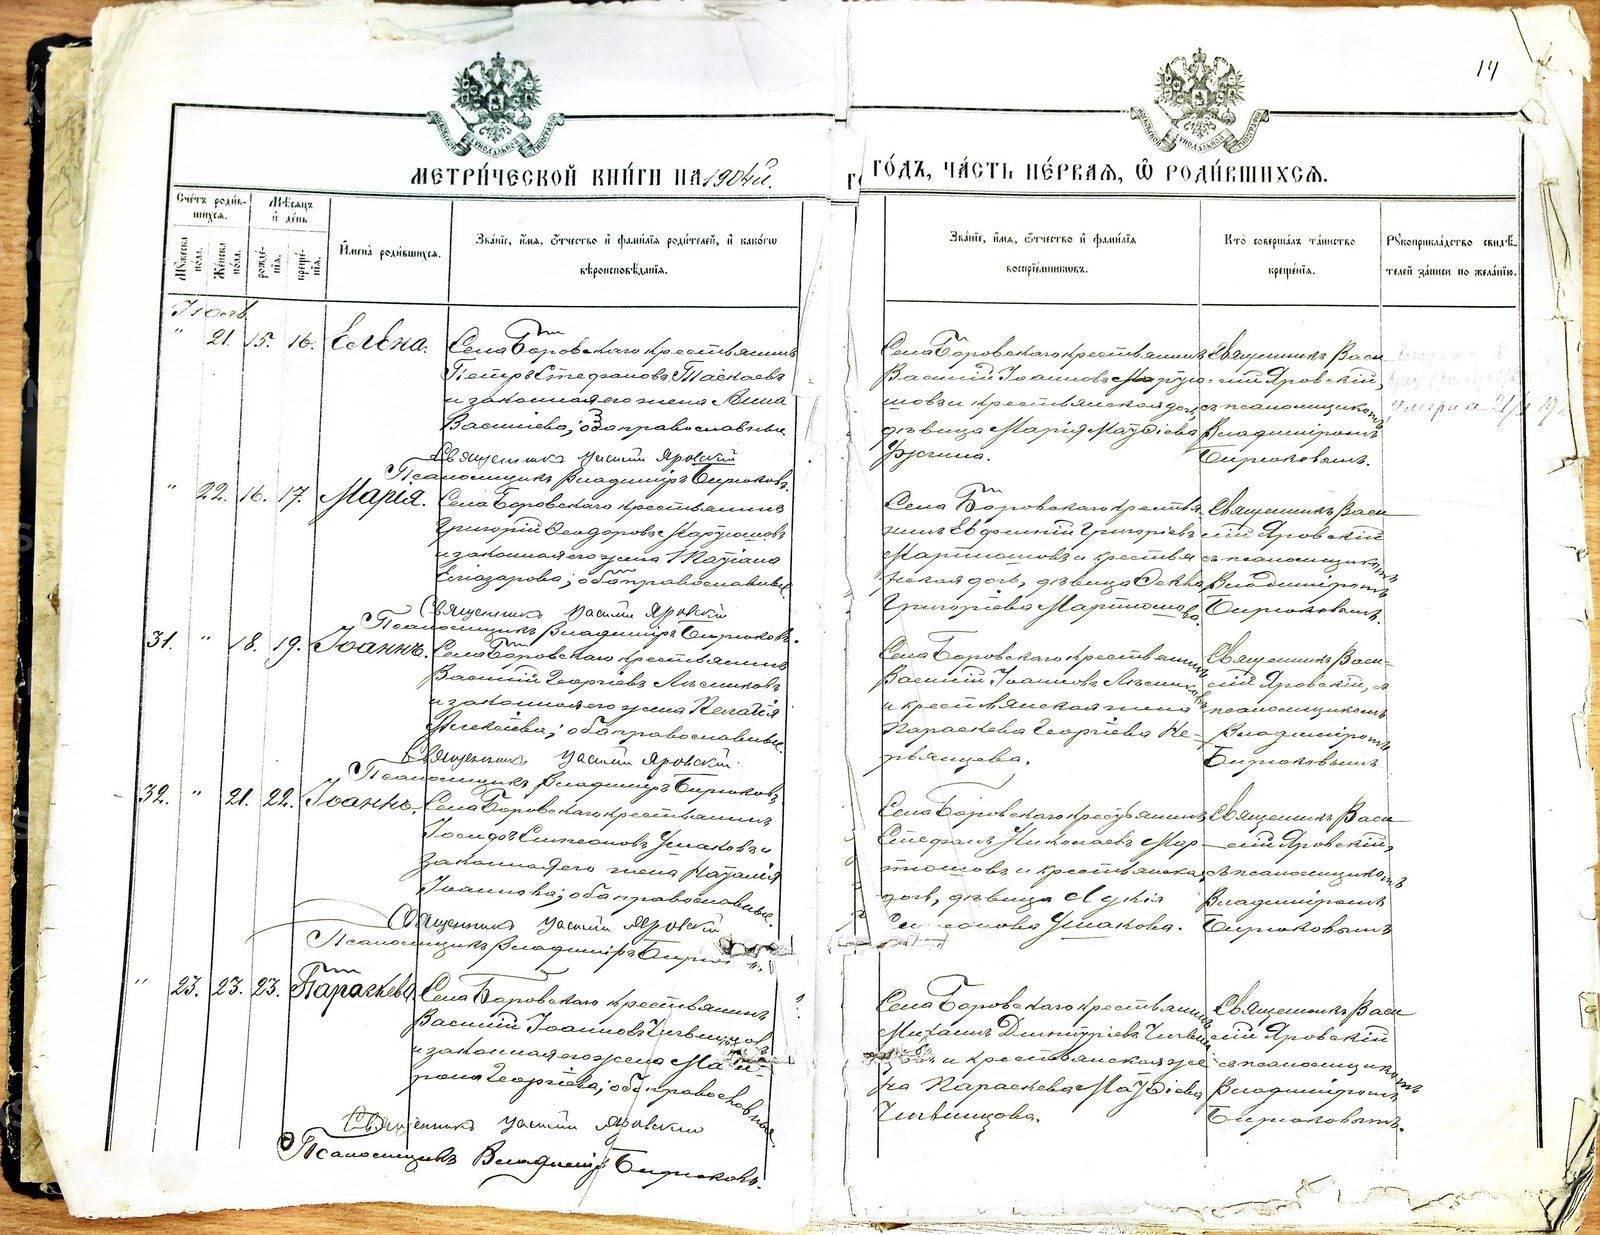 14
МЕТРИ́ЧЕСКОЙ КНИ́ГИ НА 1904й.
ГО́ДЪ, ЧА́СТЬ ПЕ́РВАЯ, Ѡ РОДИ́ВШИХСЯ.
Сче́тъ роди́вшихся.
Мꙋ́жеска по́ла.
Же́нска по́ла.
Мѣ́сяцъ и҆ де́нь
рожде́нїя.
креще́нїя.
И҆мена̀ роди́вшихся.
Зва́нїе, и҆́мя, ѻ҆́тчество и҆ фами́лїя роди́телей, и҆ како́гѡ
вѣроисповѣ́данїя.
Зва́нїе, и҆́мя, ѻ҆́тчество и҆ фами́лїя
воспрїе́мниковъ.
Кто̀ соверша́лъ та́инство
креще́нїя.
Рꙋкоприкла́дство свидѣ́-
телей за́писи по жела́нїю.
" 21. 15. 16. Елена.
Села Боровскаго крестьянинъ
Петръ Стефановъ Таскаевъ
и законная его жена Анна
Василіева; оба православные.
Священникъ Василій Яровскій
Псаломщикъ Владиміръ Бирюковъ.
Села Боровскаго крестьянинъ
Василій Іоанновъ
и крестьянская дочь
дѣвица Марія Матѳіева
Священникъ Васи
лій Яровскій,
съ псаломщикомъ
Владиміромъ
Бирюковымъ.
" 22. 16. 17. Марія.
Села Боровскаго крестьянинъ
Григорій Ѳеодоровъ
и законная его жена Татіана
Елеазарова; оба православные
Священникъ Василій Яровскій
Псаломщикъ Владиміръ Бирюковъ.
Села Боровскаго крестья
нинъ Евфимій Григоріевъ
Мартюшовъ и крестьян
ская дочь, дѣвица
Григоріева Мартюшова.
Священникъ Васи
лій Яровскій
съ псаломщикомъ
Владиміромъ
Бирюковымъ.
31. " 18. 19. Іоаннъ.
Села Боровскаго крестьянинъ
Василій Георгіевъ Лѣсниковъ
и законная его жена Пелагія
Алексѣева; оба православные.
Священникъ Василій Яровскій
Псаломщикъ Владиміръ Бирюковъ
Села Боровскаго крестьянинъ
Василій Іоанновъ Лѣсниковъ
и крестьянская жена
Параскева Георгіева
Священникъ Васи-
лій Яровскій, съ
псаломщикомъ
Владиміромъ
Бирюковымъ
32. " 21. 22. Іоаннъ.
Села Боровскаго крестьянинъ
Іосифъ Симеоновъ Ушаковъ и
законная его жена Наталія
Іоаннова; оба православные.
Священникъ Василій Яровскій
Псаломщикъ Владиміръ
Села Боровскаго крестьянинъ
Стефанъ Николаевъ Мар
тюшовъ и крестьянская
дочь, дѣвица Лукія
Ушакова.
Священникъ Васи
лій Яровскій,
съ псаломщикомъ
Владиміромъ
Бирюковымъ
" 23. 23. 23. Параскева
Села Боровскаго крестьянинъ
Василій Іоанновъ
и законная его жена
Георгіева; оба православные
Священникъ Василій Яровскій
Псаломщикъ Владиміръ Бирюковъ.
Села Боровскаго крестьянинъ
Михаилъ Димитріевъ
и крестьянская же
на Параскева Матѳіева
Священникъ Васи
лій Яровскій
съ псаломщикомъ
Владиміромъ
Бирюковымъ.